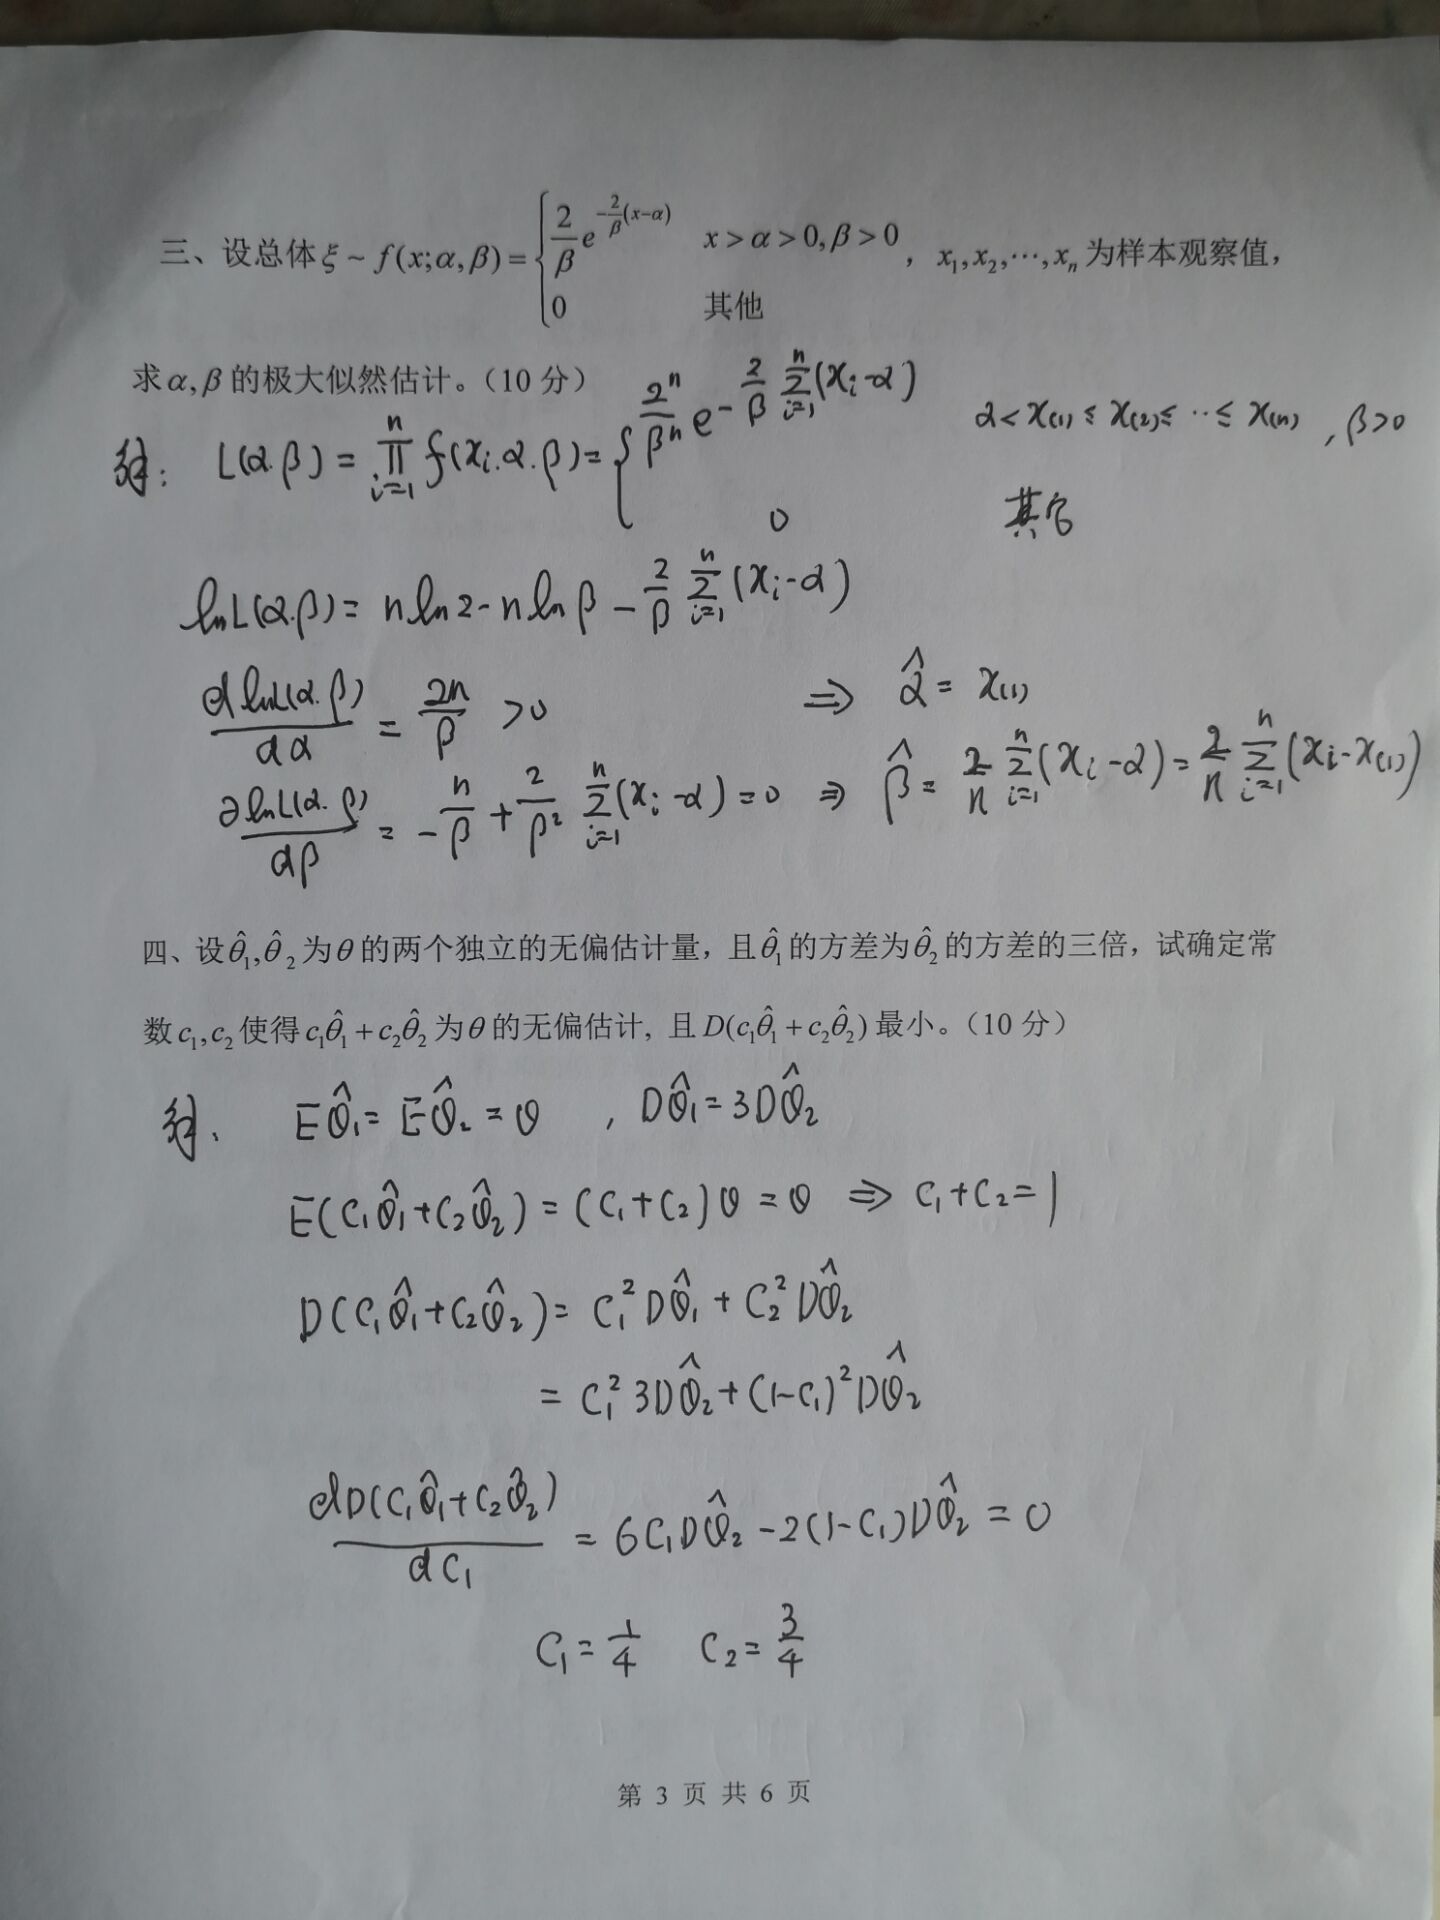 三、设总体 ξ ~ f(x;α,β) = { (2/β)e^{-(2/β)(x-α)}  x > α > 0, β > 0 ; 0  其他 ， x₁,x₂,⋯,xₙ 为样本观察值，
求 α,β 的极大似然估计。（10 分）
解: L(α.β) = ∏_{i=1}^{n} f(xᵢ.α.β) = { (2ⁿ/βⁿ) e^{-(2/β) Σ_{i=1}^{n}(xᵢ-α)}  α < x₍₁₎ ≤ x₍₂₎ ≤ ‥ ≤ x₍ₙ₎ , β>0 ; 0  其它
lnL(α.β) = n ln2 - n lnβ - (2/β) Σ_{i=1}^{n} (xᵢ-α)
d lnL(α.β)/dα = 2n/β > 0  ⇒ α̂ = x₍₁₎
∂lnL(α.β)/dβ = -n/β + (2/β²) Σ_{i=1}^{n} (xᵢ-α) = 0 ⇒ β̂ = (2/n) Σ_{i=1}^{n} (xᵢ-α) = (2/n) Σ_{i=1}^{n} (xᵢ-x₍₁₎)
四、设 θ̂₁,θ̂₂ 为 θ 的两个独立的无偏估计量，且 θ̂₁ 的方差为 θ̂₂ 的方差的三倍，试确定常
数 c₁,c₂ 使得 c₁θ̂₁ + c₂θ̂₂ 为 θ 的无偏估计, 且 D(c₁θ̂₁ + c₂θ̂₂) 最小。（10 分）
解、 Eθ̂₁ = Eθ̂₂ = θ , Dθ̂₁ = 3Dθ̂₂
E(C₁θ̂₁+C₂θ̂₂) = (C₁+C₂)θ = θ ⇒ C₁+C₂=1
D(C₁θ̂₁+C₂θ̂₂) = C₁²Dθ̂₁ + C₂²Dθ̂₂
= C₁²3Dθ̂₂ + (1-C₁)²Dθ̂₂
dD(C₁θ̂₁+C₂θ̂₂)/dC₁ = 6C₁Dθ̂₂ - 2(1-C₁)Dθ̂₂ = 0
C₁ = 1/4  C₂ = 3/4
第 3 页 共 6 页